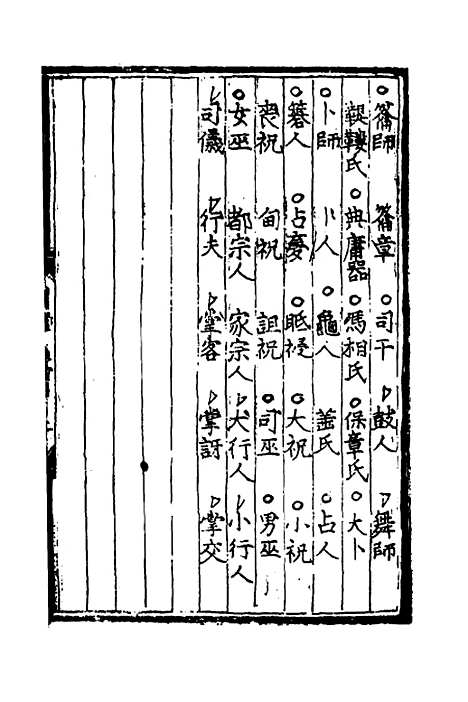 ○籥師　籥章　○司干　▷鼓人　▷舞師
鞮鞻氏　○典庸器　○馮相氏　○保章氏　○大卜
○卜師　卜人　○龜人　菙氏　○占人
○簭人　○占夢　○眡祲　○大祝　○小祝
喪祝　甸祝　詛祝　○司巫　○男巫
○女巫　都宗人　家宗人　▷大行人　▷小行人
▷司儀　▷行夫　▷掌客　▷掌訝　▷掌交